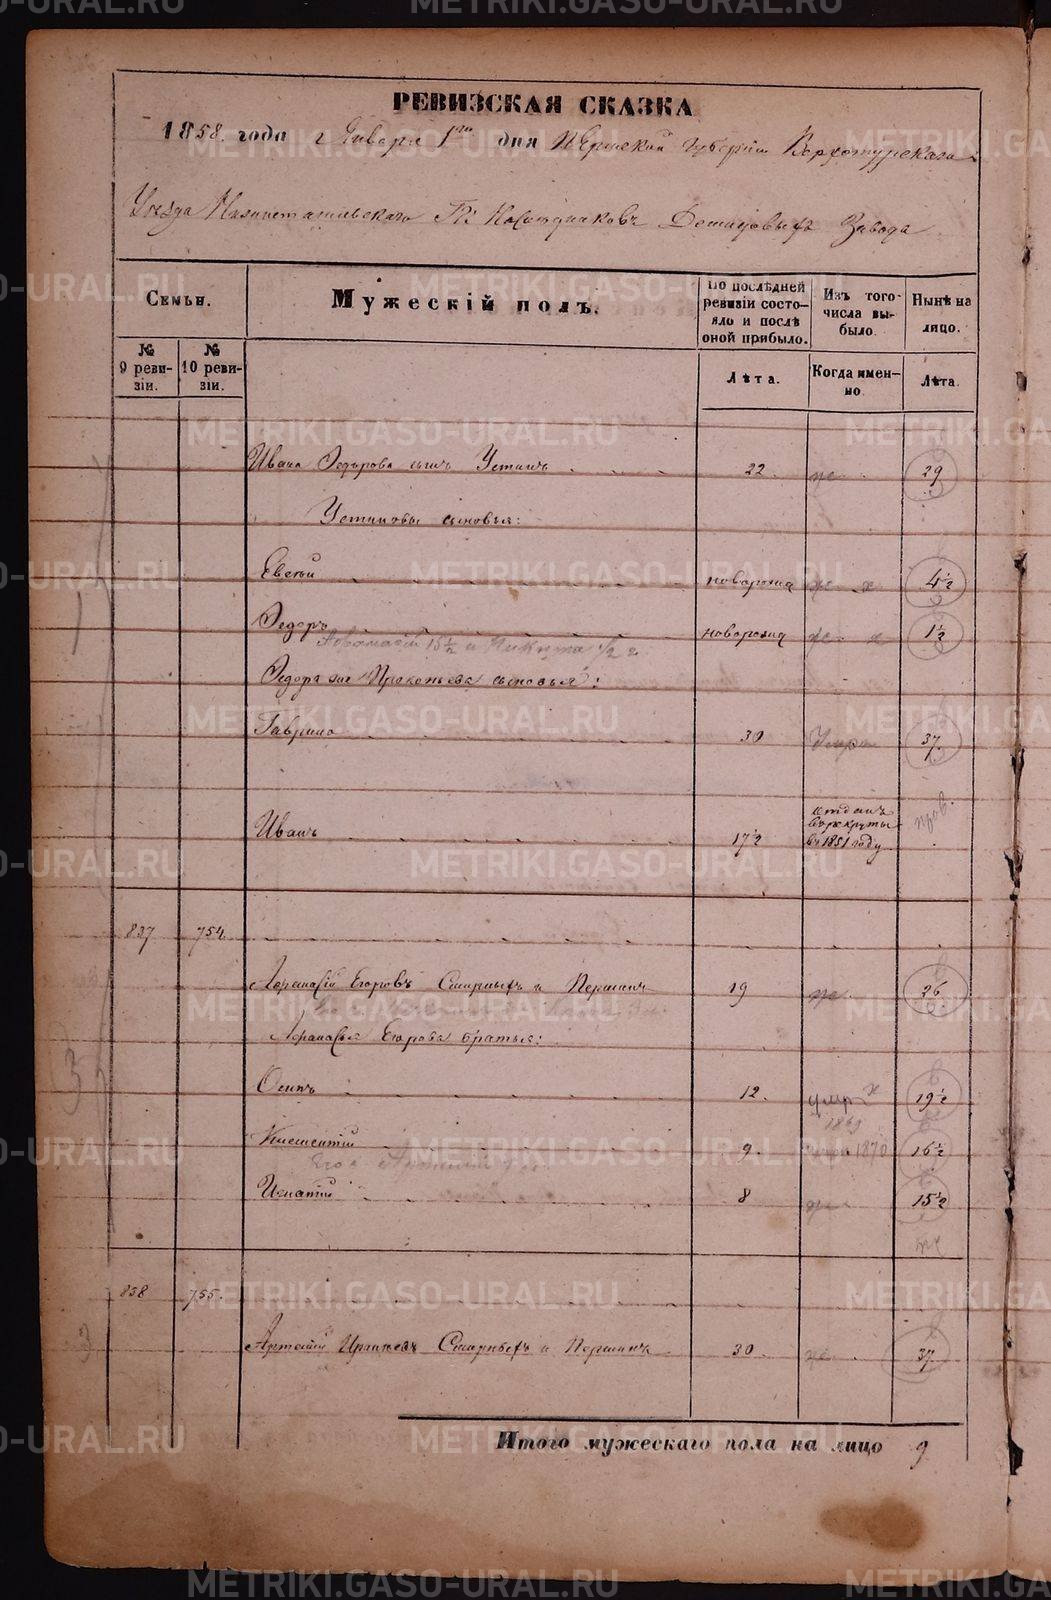 РЕВИЗСКАЯ СКАЗКА
1858 года Генваря 1го дня Пермской губернии Верхотурскаго
Уезда Нижнетагильскаго Гг. Наследниковъ Демидовыхъ Завода
Семьи.
Мужескій полъ.
По послѣдней ревизіи состояло и послѣ оной прибыло.
Изъ того числа выбыло.
Нынѣ на лицо.
№ 9 ревизіи.
№ 10 ревизіи.
Лѣта.
Когда именно.
Лѣта.
Ивана Федорова сынъ Устинъ 22 29
Устиновы сыновья:
Евсѣй новорожд 4 1/2
Федоръ новорожд 1 1/2
15 1/2 и Никита 1/2 г
Федора же Прокопьева сыновья:
Гаврило 30 37
Иванъ 17 1/2 отданъ въ рекруты въ 1851 году
837 754.
Афанасій Егоровъ Смирныхъ и Першинъ 19 26
Афанасья Егорова братья:
Осипъ 12. умр 1869 19 1/2
Климентій 9. умр 1870 16 1/2
Его с
Игнатій 8 15 1/2
838 755.
Артемій Смирныхъ и Першинъ 30. 37
Итого мужескаго пола на лицо 9
METRIKI.GASO-URAL.RU